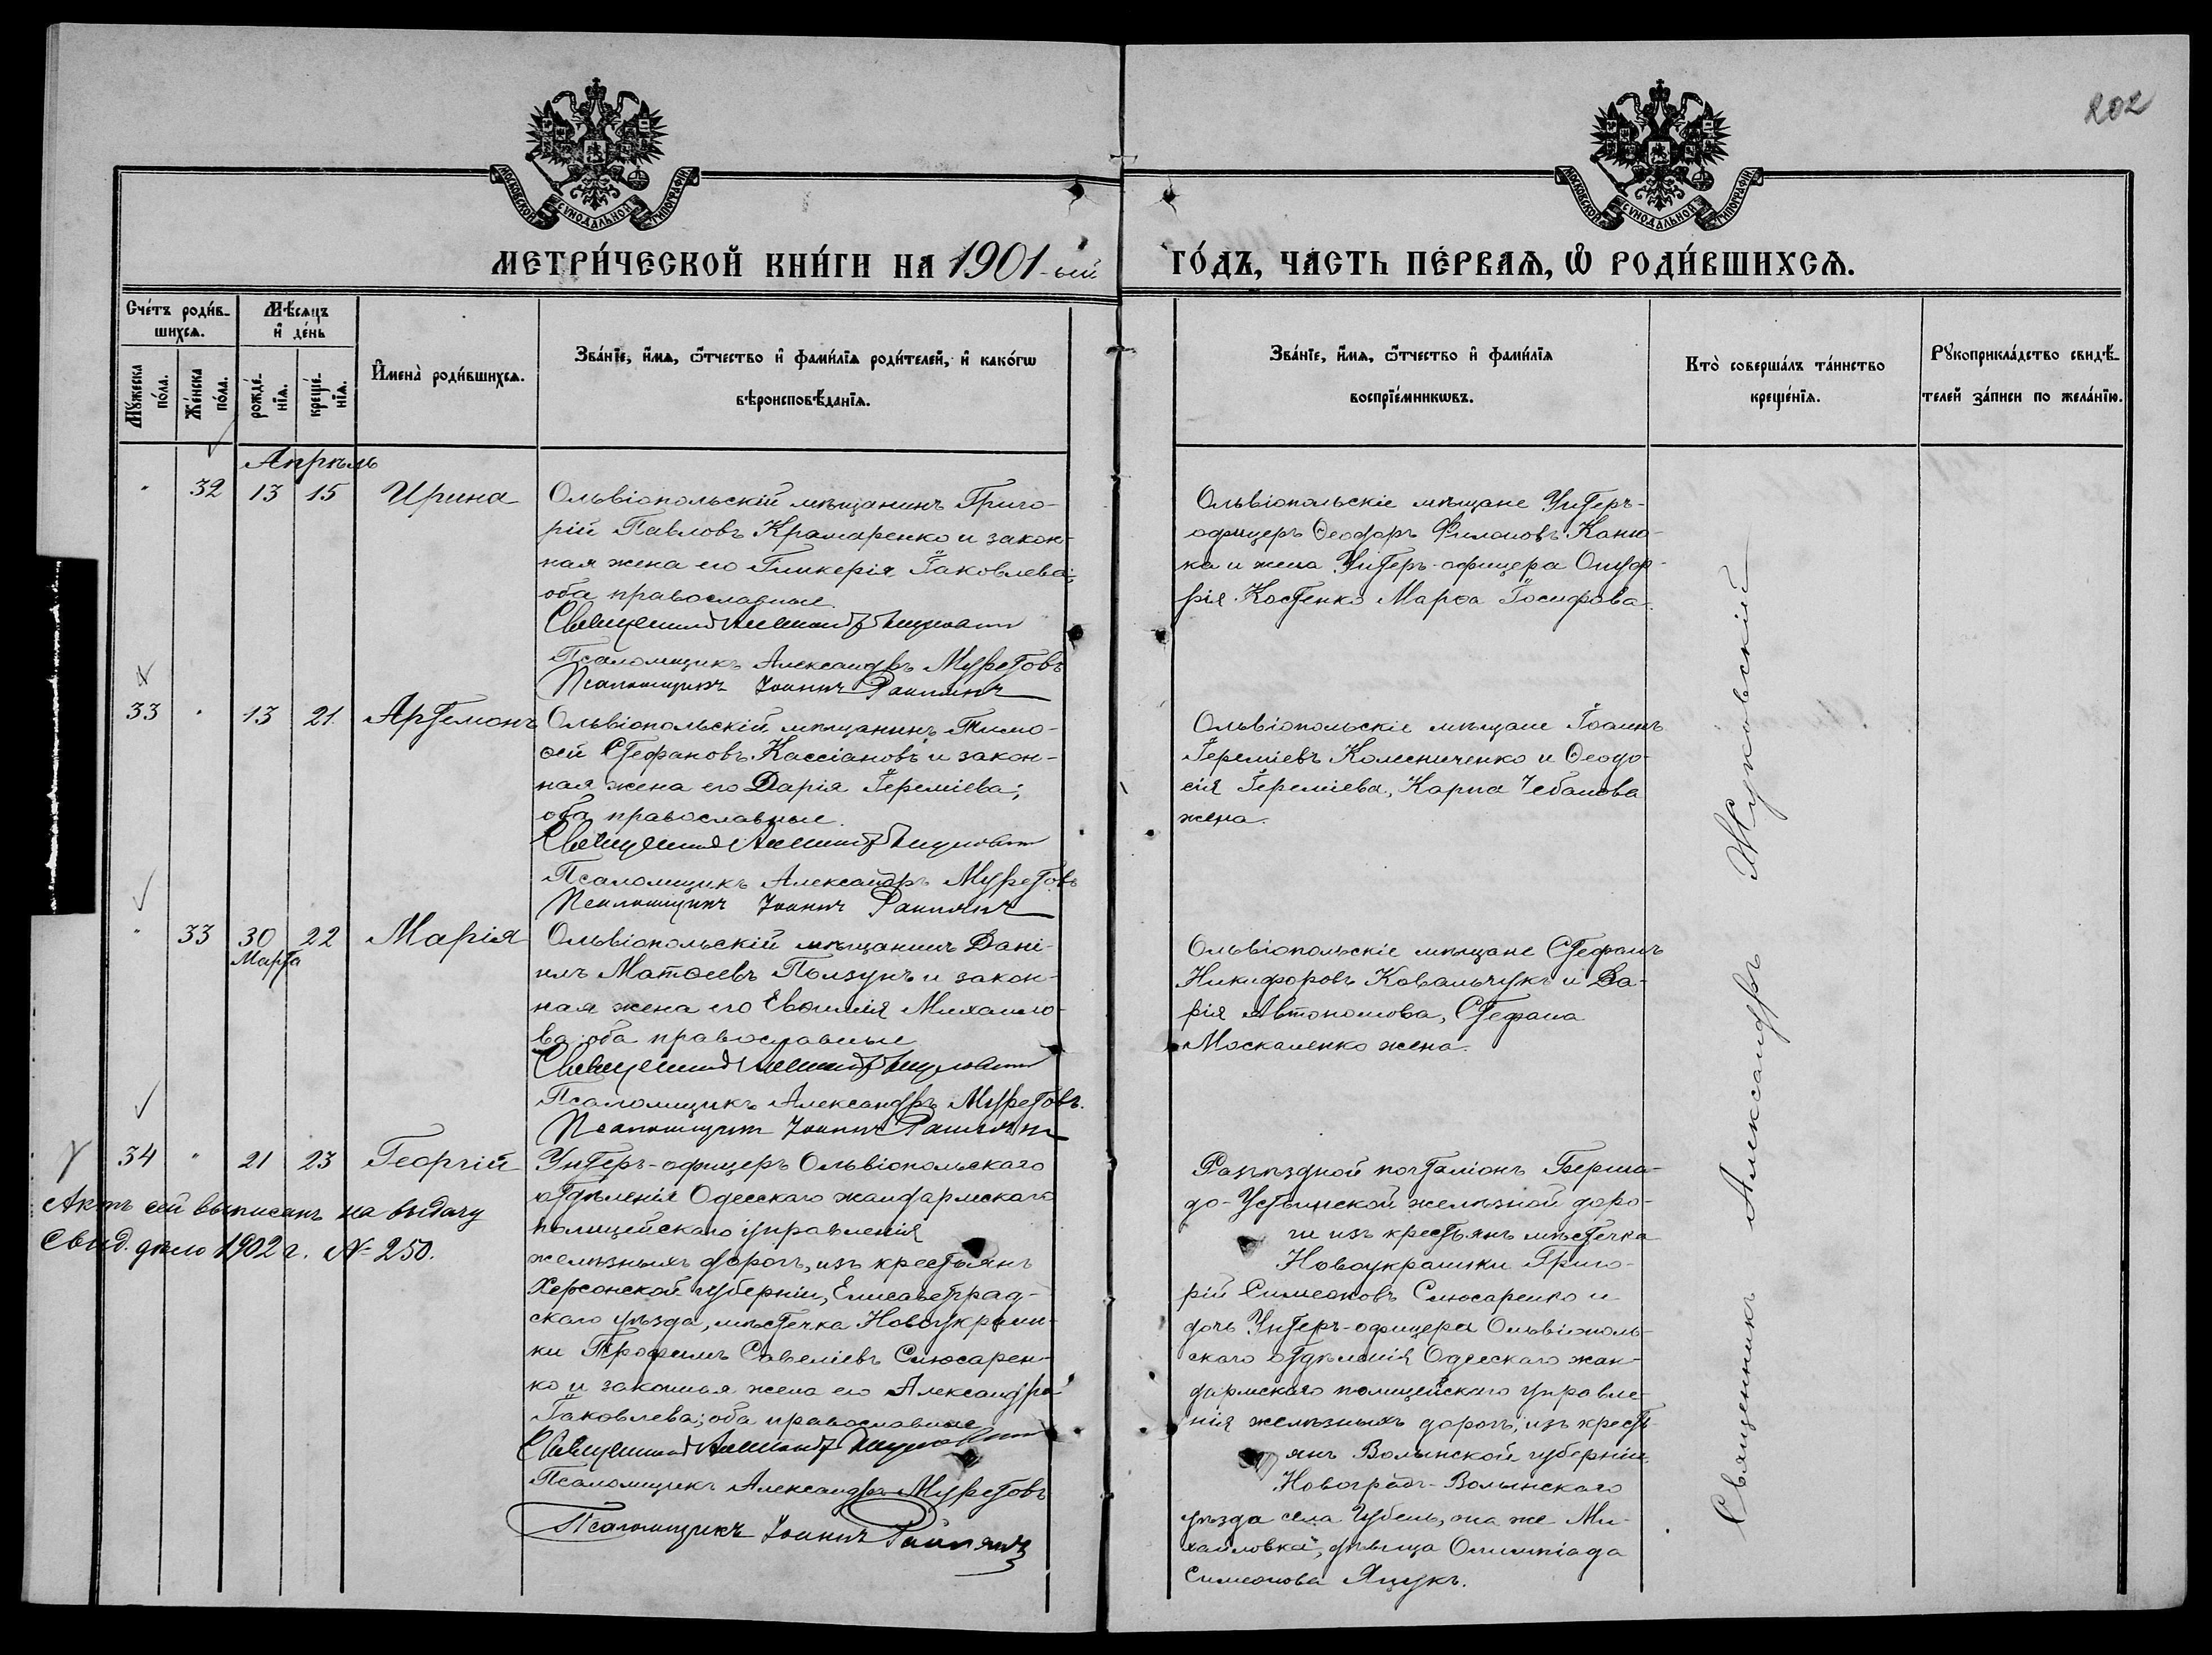 202
МОСКОВСКОЙ СѴНОДАЛЬНОЙ ТИПОГРАФІИ
МОСКОВСКОЙ СѴНОДАЛЬНОЙ ТИПОГРАФІИ
МЕТРИ́ЧЕСКОЙ КНИ́ГИ НА 1901-ый ГО́ДЪ, ЧА́СТЬ ПЕ́РВАѦ, Ѡ РОДИ́ВШИХСѦ.
Сче́тъ роди́в-
шихсѧ.
Мѣ́сѧцъ
и҆ де́нь
Мꙋ́жеска
по́ла.
Же́нска
по́ла.
рожде́-
нїѧ.
креще́-
нїѧ.
И҆мена̀ роди́вшихсѧ.
Зва́нїе, и҆́мѧ, ѻ҆́тчество и҆ фами́лїѧ роди́телей, и҆ како́гѡ
вѣроисповѣ́данїѧ.
Зва́нїе, и҆́мѧ, ѻ҆́тчество и҆ фами́лїѧ
воспрїе́мникѡвъ.
Кто̀ соверша́лъ та́инство
креще́нїѧ.
Рꙋкоприкла́дство свидѣ́-
телей за́писи по жела́нїю.
Апрѣль
" 32 13 15 Ирина
Ольвіопольскій мѣщанинъ Григо-
рій Павловъ Крамаренко и закон-
ная жена его Гликерія Іаковлева;
оба православные.
Священникъ Александръ Жуковскій
Псаломщикъ Александръ Муретовъ
Псаломщикъ Іоаннъ
Ольвіопольскіе мѣщане Унтеръ-
офицеръ Ѳеодоръ Филоновъ Каню-
ка и жена Унтеръ-офицера Онуф-
рія Костенко Марѳа Іосифова.
33 " 13 21. Артемонъ
Ольвіопольскій мѣщанинъ Тимо-
ѳей Стефановъ Кассіановъ и закон-
ная жена его Дарія Іереміева;
оба православные.
Священникъ Александръ Жуковскій
Псаломщикъ Александръ Муретовъ
Псаломщикъ Іоаннъ
Ольвіопольскіе мѣщане Іоаннъ
Іереміевъ Колесниченко и Ѳеодо-
сія Іереміева, Карпа Чебанова
жена.
" 33 30 22 Марія
Марта
Ольвіопольскій мѣщанинъ Дані-
илъ Матѳеевъ Ползунъ и закон-
ная жена его Евѳимія Михаило-
ва; оба православные
Священникъ Александръ Жуковскій
Псаломщикъ Александръ Муретовъ.
Псаломщикъ Іоаннъ
Ольвіопольскіе мѣщане Стефанъ
Никифоровъ Ковальчукъ и Да-
рія Автономова, Стефана
Москаленко жена.
34 " 21 23 Георгій
Актъ сей выписанъ на выдачу
Свид. дѣло 1902 г. № 250.
Унтеръ-офицеръ Ольвіопольскаго
отдѣленія Одесскаго жандармскаго
полицейскаго управленія
желѣзныхъ дорогъ, изъ крестьянъ
Херсонской губерніи, Елисаветград-
скаго уѣзда, мѣстечка Новоукраин-
ки Трофимъ Савеліевъ Слюсарен-
ко и законная жена его Александра
Іаковлева; оба православные
Священникъ Александръ Жуковскій
Псаломщикъ Александръ Муретовъ
Псаломщикъ Іоаннъ
Разъѣздной почталіонъ Берша-
до-Устьинской желѣзной доро-
ги изъ крестьянъ мѣстечка
Новоукраинки Григо-
рій Симеоновъ Слюсаренко и
дочь Унтеръ-офицера Ольвіополь-
скаго отдѣленія Одесскаго жан-
дармскаго полицейскаго управле-
нія желѣзныхъ дорогъ, изъ кресть-
янъ Волынской губерніи,
Новоградъ-Волынскаго
уѣзда села Губель, она же Ми-
хайловка, дѣвица Олимпіада
Симеонова Яцукъ.
Священникъ Александръ Жуковскій